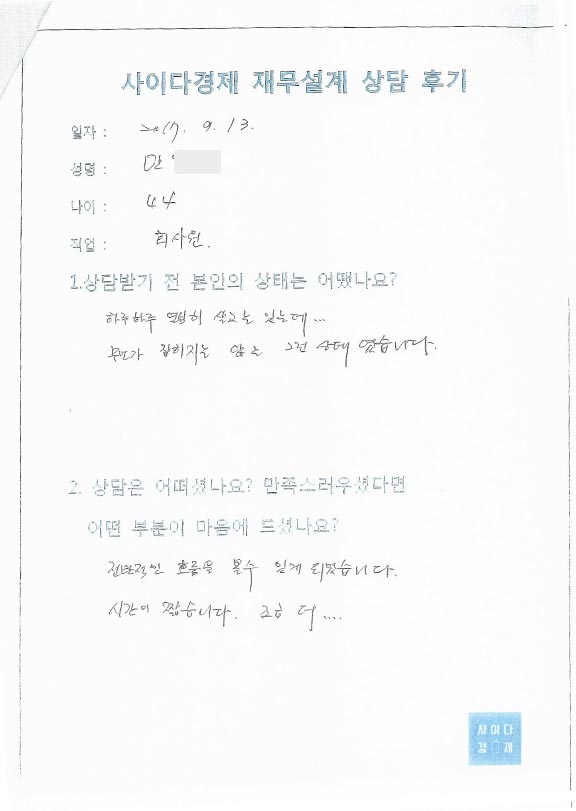 사이다경제 재무설계 상담 후기
일자 : 2017. 9. 13.
성명 : 안
나이 : 44
직업 : 회사원.
1.상담받기 전 본인의 상태는 어땠나요?
하루하루 열심히 살고는 있는데...
무언가 잡히지는 않는 그런 상태 였습니다.
2. 상담은 어떠셨나요? 만족스러우셨다면
어떤 부분이 마음에 드셨나요?
전반적인 흐름을 볼수 있게 되었습니다.
시간이 짧습니다. 조금 더....
사이다
경제